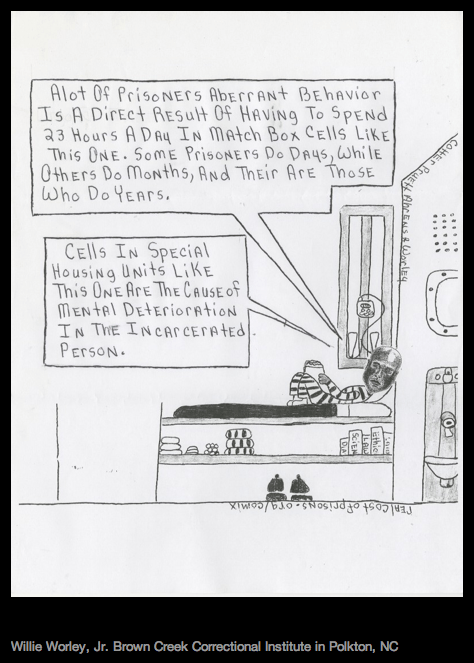 Alot Of Prisoners Aberrant Behavior
Is A Direct Result Of Having To Spend
23 Hours A Day In Match Box Cells Like
This One. Some Prisoners Do Days, While
Others Do Months, And Their Are Those
Who Do Years.
Cells In Special
Housing Units Like
This One Are The Cause of
Mental Deterioration
In The Incarcerated
Person.
Ahrens & Worley
Scien
Law
Ethic
realcostofprisons.org/comix
Willie Worley, Jr. Brown Creek Correctional Institute in Polkton, NC